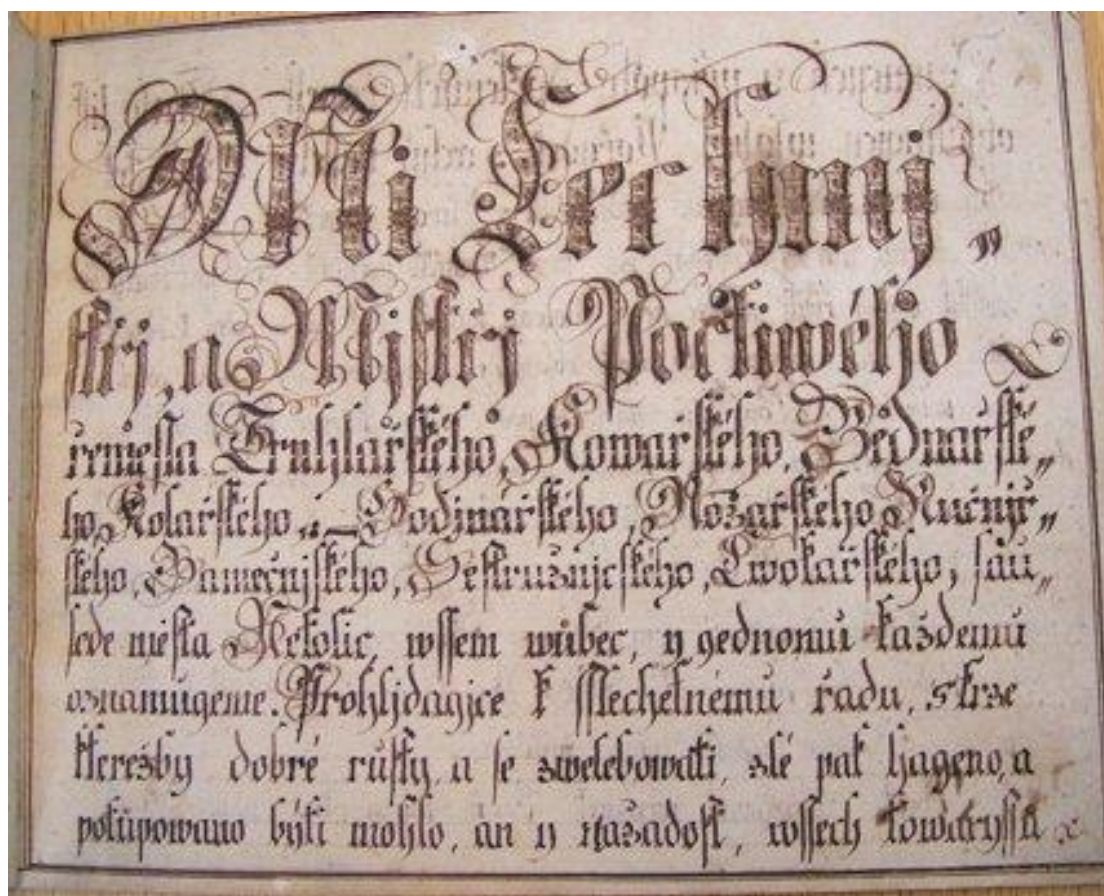 My Cechmj„
strj, a Mjstrj Pocktiwého
remesla Truhlařského, Kowařského, Bednařské„
ho, Kolařského, Hodjnářského, Nožařského Ručnjř„
ského, Zamečnjského, Sestružnjcského, Cwokařského, sau„
sede města Netolic, wssem wůbec, y gednomu každemu
oznamugeme. Prohljdagjce k sslechetnému řadu, skrze
kterežby dobré růsty, a se zwelebowati, zlé pak hageno, a
potupowano býti mohlo, an y nažadost, wssech towaryssů